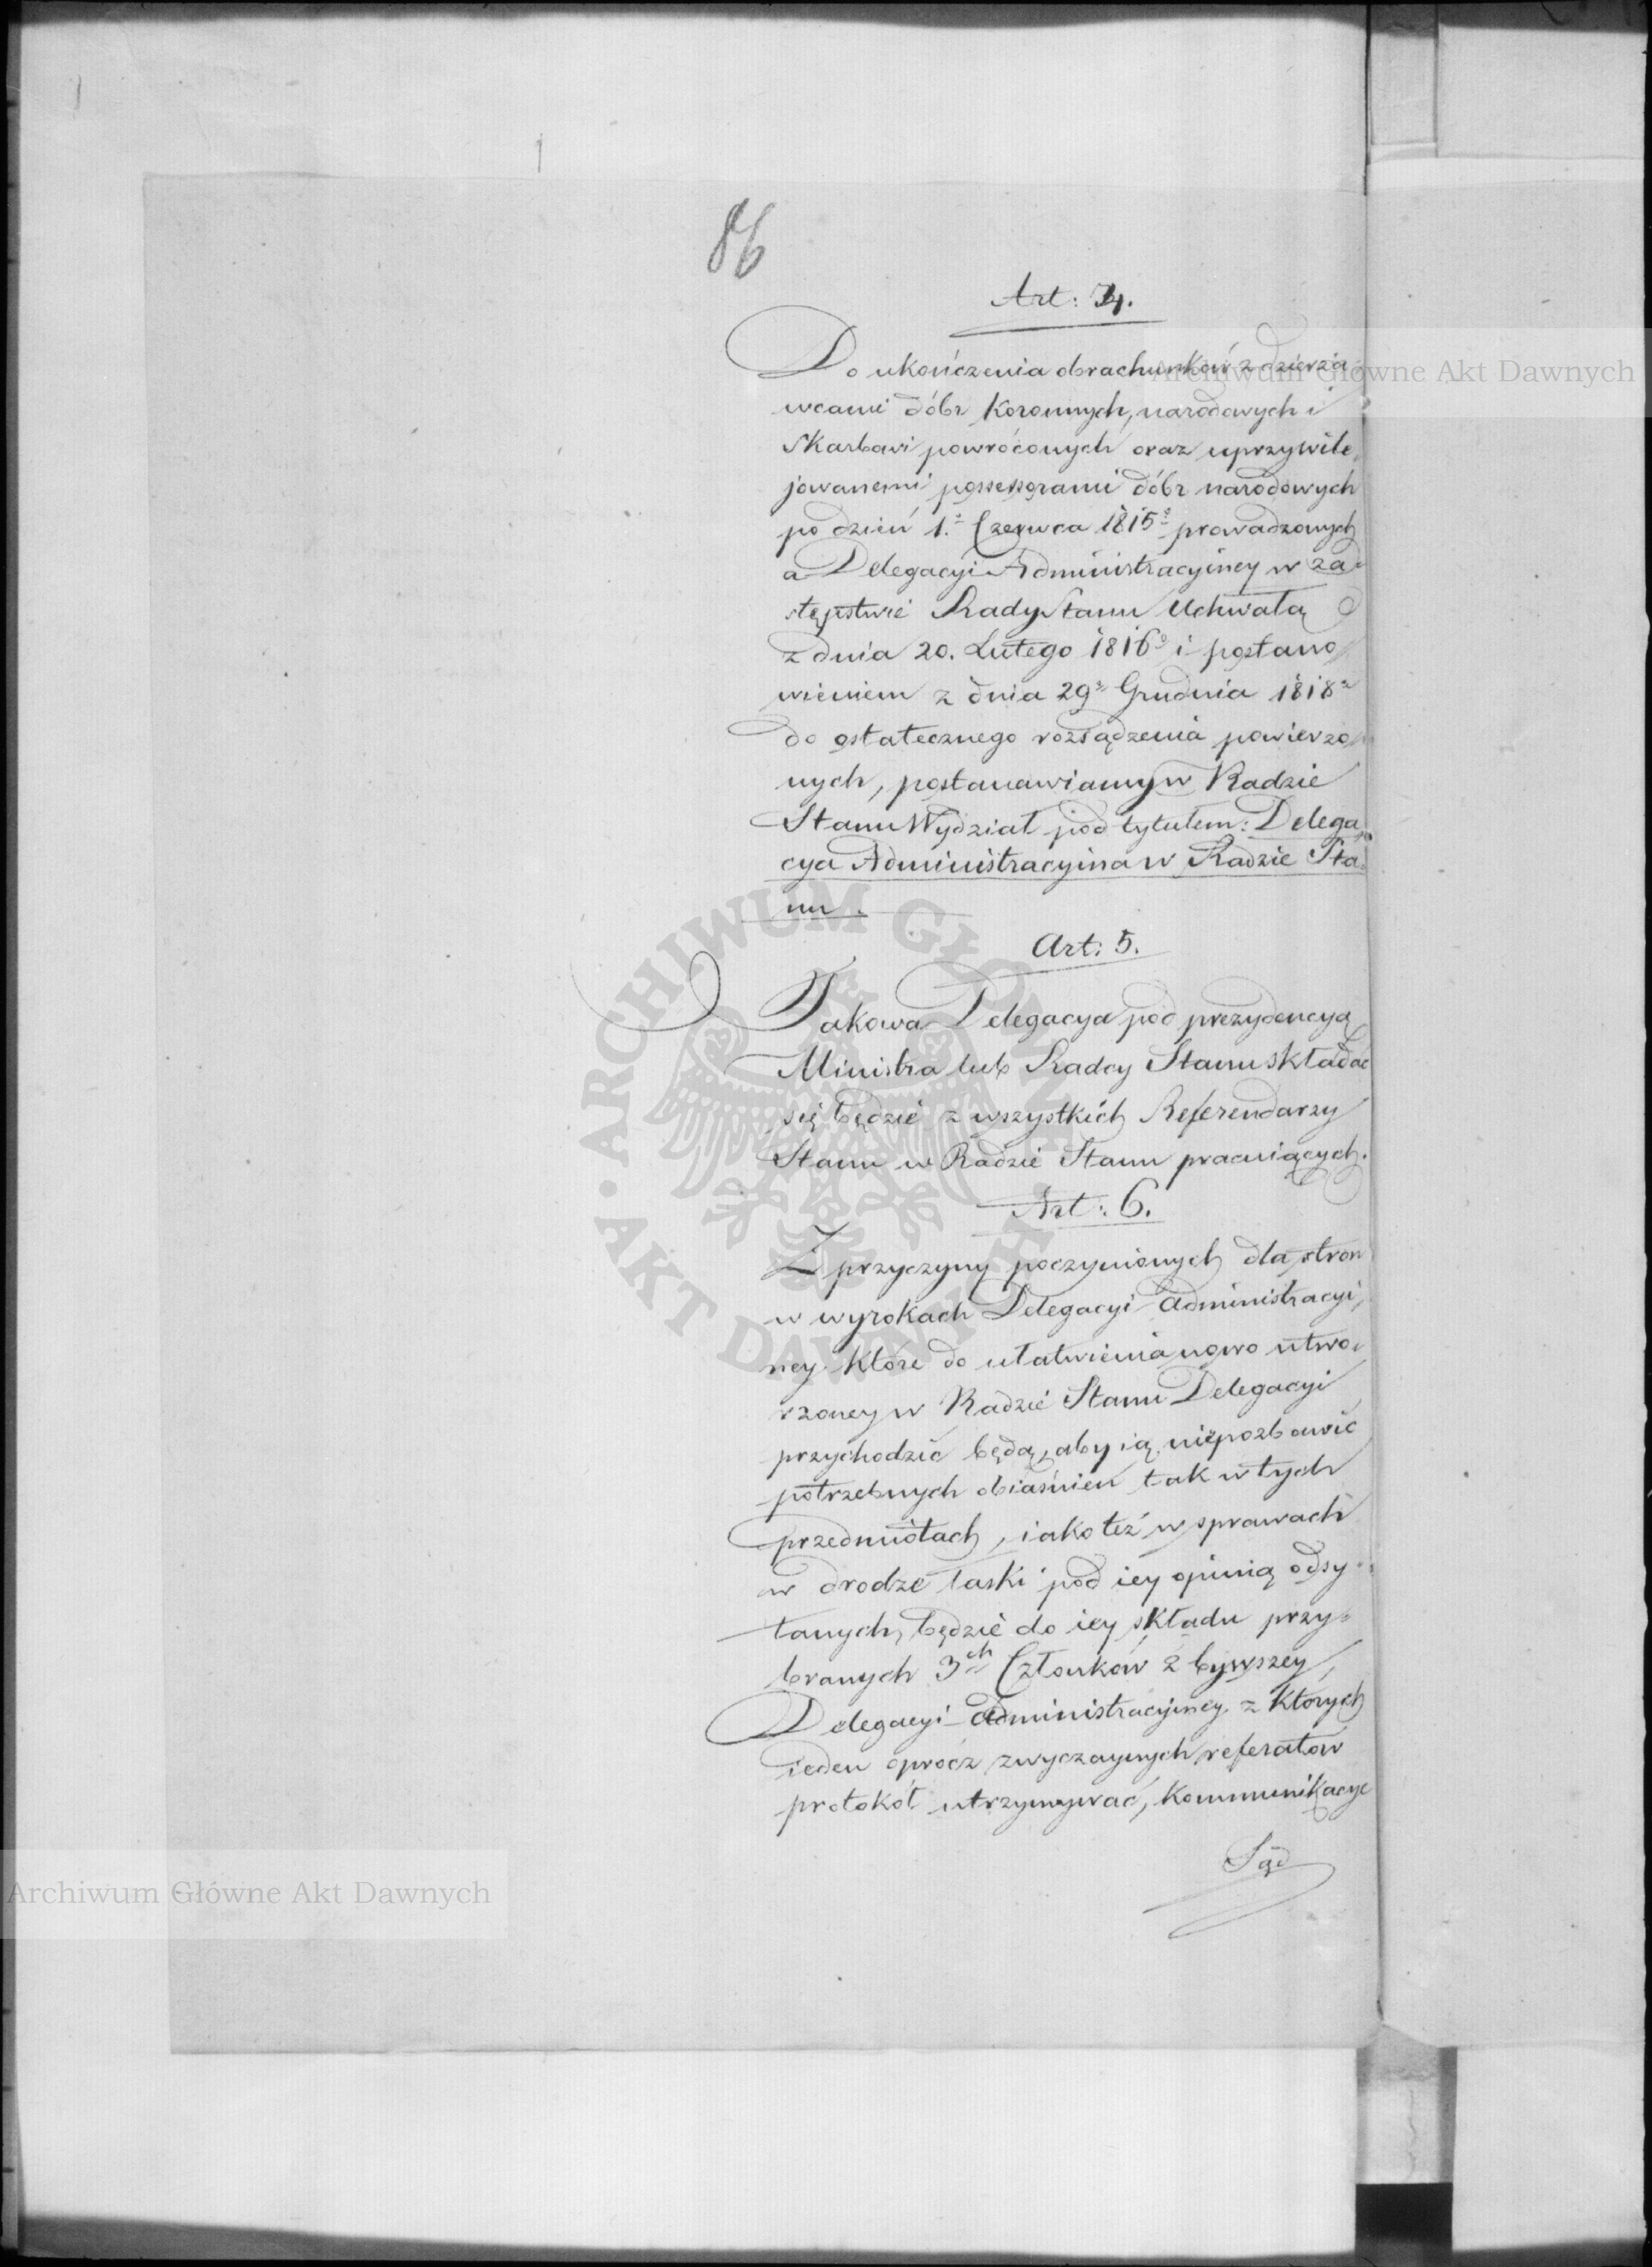 86
Art: 4.
Do ukończenia obrachunków z dzierża
wcami dóbr Koronnych, narodowych i
Skarbowi powróconych oraz uprzywile
jowanemi possessorami dóbr narodowych
po dzień 1.º Czerwca 1815º prowadzonych
a Delegacyi Administracyiney w za
stępstwie Rady Stanu Uchwałą
z dnia 20. Lutego 1816º i postano
wieniem z dnia 29º Grudnia 1818º
do ostatecznego rozsądzenia powierzo
nych, postanawiamy w Radzie
Stanu Wydział pod tytułem: Delega
cya Administracyina w Radzie Sta
nu.
Art: 5.
Takowa Delegacya pod prezydencyą
Ministra lub Radcy Stanu składać
się będzie z wszystkich Referendarzy
Stanu w Radzie Stanu pracuiących.
Art: 6.
Z przyczyny poczynionych dla stron
w wyrokach Delegacyi Administracyi,
ney które do ułatwienia nowo utwo,
rzoney w Radzie Stanu Delegacyi
przychodzić będą, aby ią niepozbawić
potrzebnych obiaśnień tak w tych
przedmiotach, iako też w sprawach
w drodze łaski pod iey opinią odsy
łanych, będzie do iey składu przy=
branych 3ch Członków z bywszey
Delegacyi Administracyiney z których
ieden oprócz zwyczaynych referatów
protokół utrzymywać, kommunikacye
Sąd
Archiwum Główne Akt Dawnych
Archiwum Główne Akt Dawnych
ARCHIWUM GŁÓWNE · AKT DAWNYCH ·